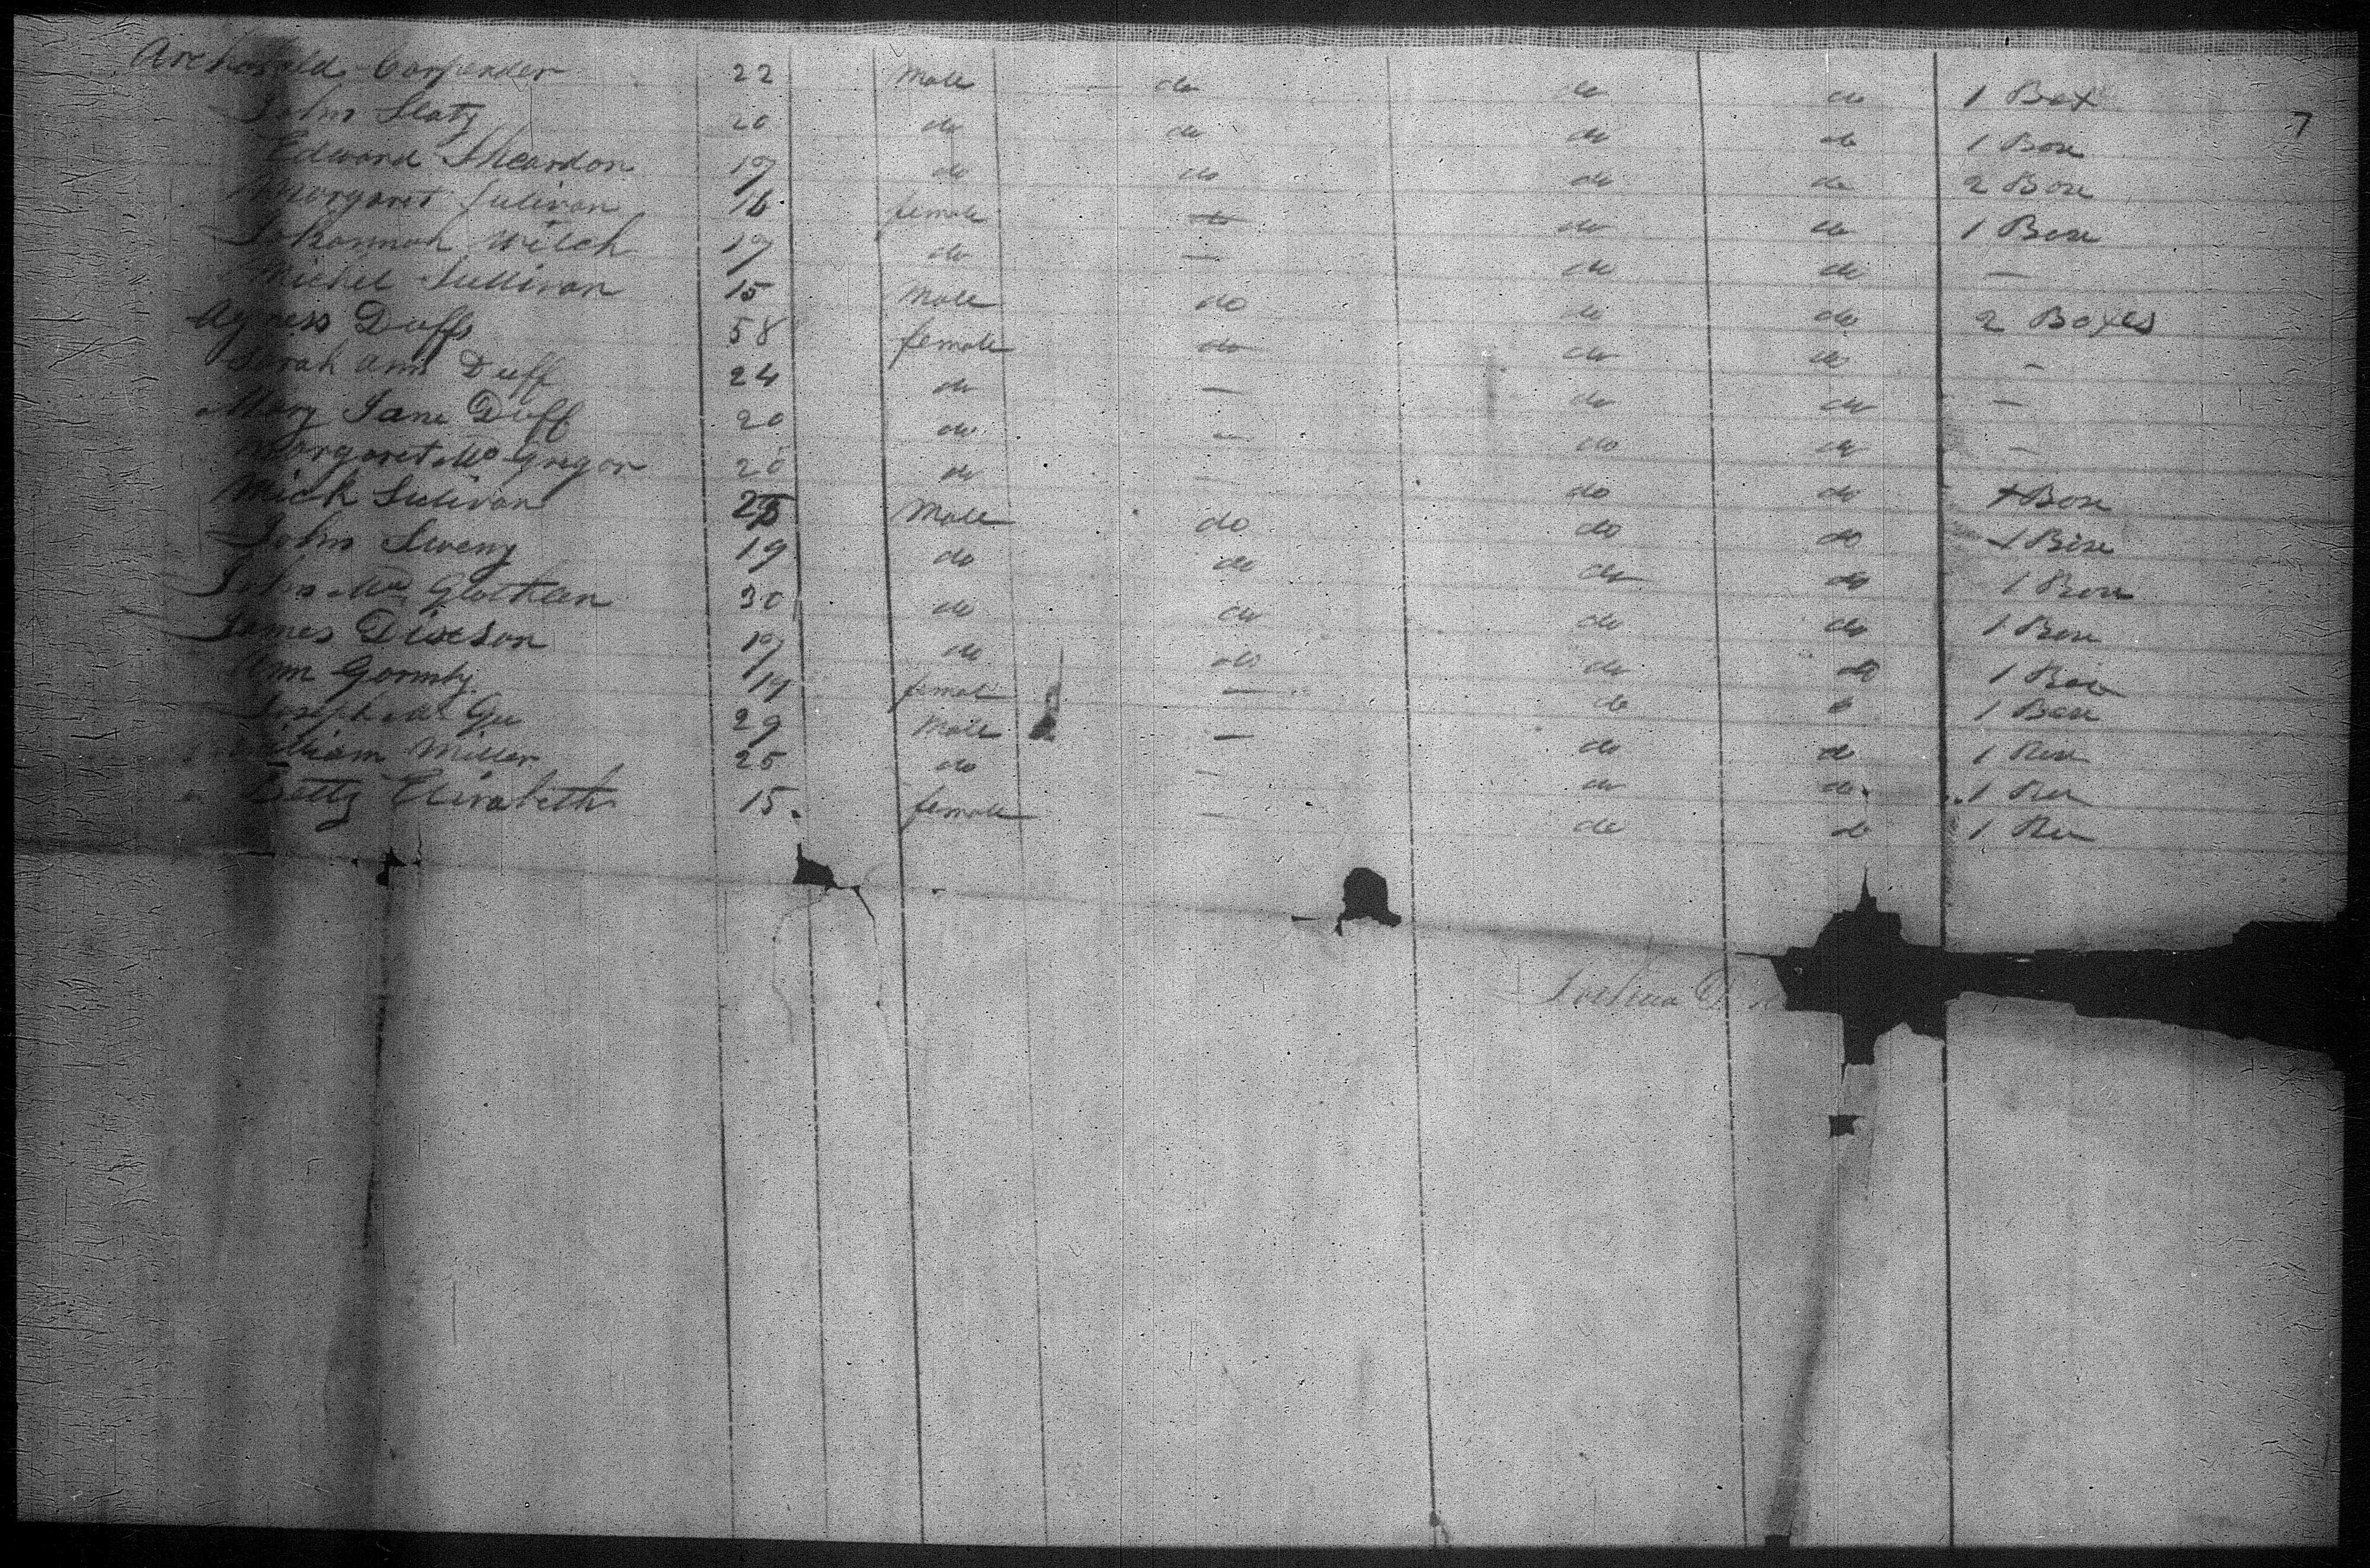 Archabald Carpender 22 Male — do do do 1 Box
7
John Slaty 20 do do do do 1 Box
Edward Sheardon 19 do do do do 2 Box
Margaret Sulivan 16 female do do do 1 Box
Johannah Welch 19 do — do do —
Michel Sullivan 15 Male do do do 2 Boxes
Agness Duff 58 female do do do -
Sarah Ann Duff 24 do — do do —
Mary Jane Duff 20 do — do do —
Margaret Mc Gregor 20 do — do do 1 Box
Mick Sulivan Male do do do 1 Box
John Sweny 19 do do do do 1 Box
John Mc Glothan 30 do do do do 1 Box
James Dixson 19 do do do do 1 Box
Ann Gormly 19 female — do do 1 Box
Joseph Mc Gee 29 Male — do do 1 Box
William Miller 25 do — do do 1 Box
Betty Elizabeth 15 female — do do 1 Box
Joshua